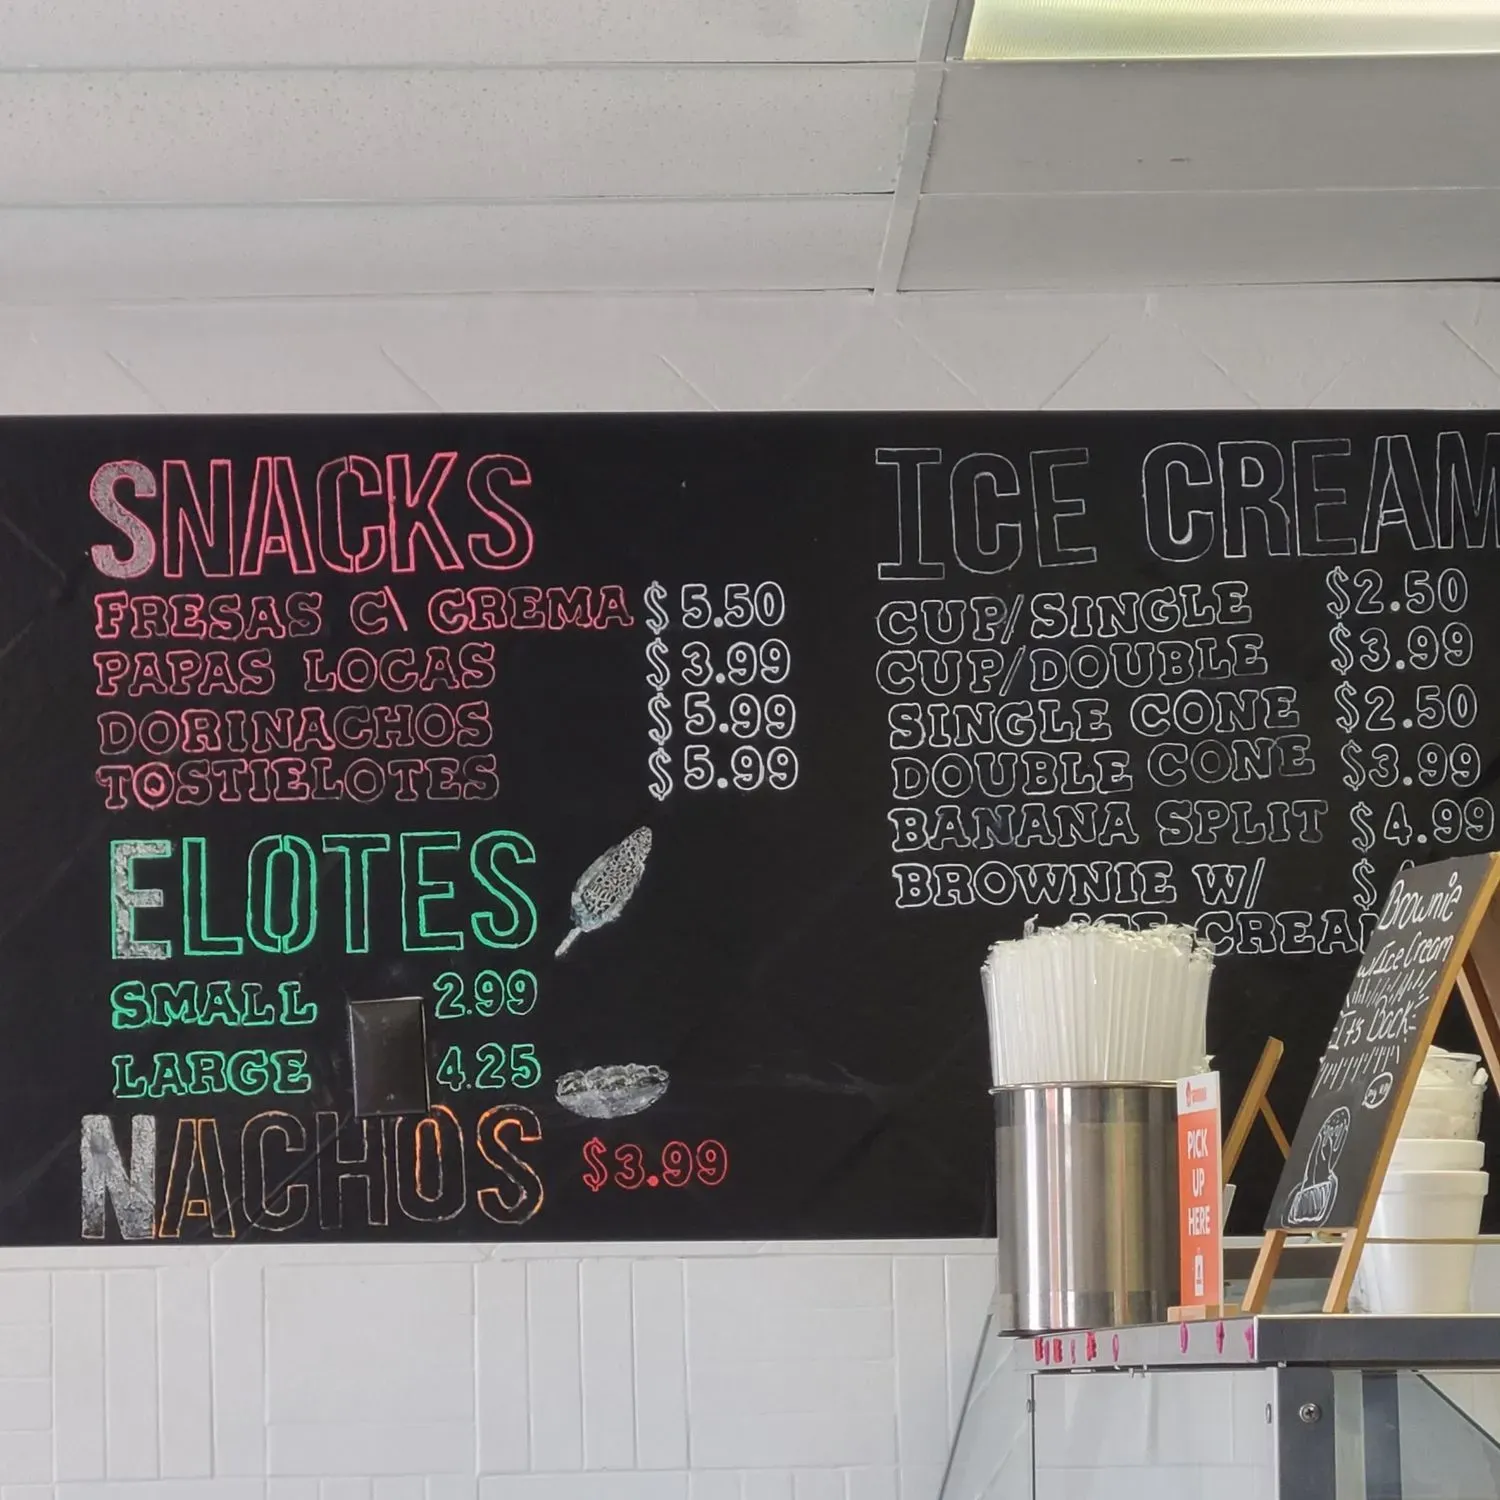 SNACKS
FRESAS C\ CREMA $5.50
PAPAS LOCAS $3.99
DORINACHOS $5.99
TOSTIELOTES $5.99
ELOTES
SMALL 2.99
LARGE 4.25
NACHOS $3.99
ICE CREAM
CUP/SINGLE $2.50
CUP/DOUBLE $3.99
SINGLE CONE $2.50
DOUBLE CONE $3.99
BANANA SPLIT $4.99
BROWNIE W/ $
ICE CREAM
PICK
UP
HERE
Brownie
w/Ice Cream
It's Back